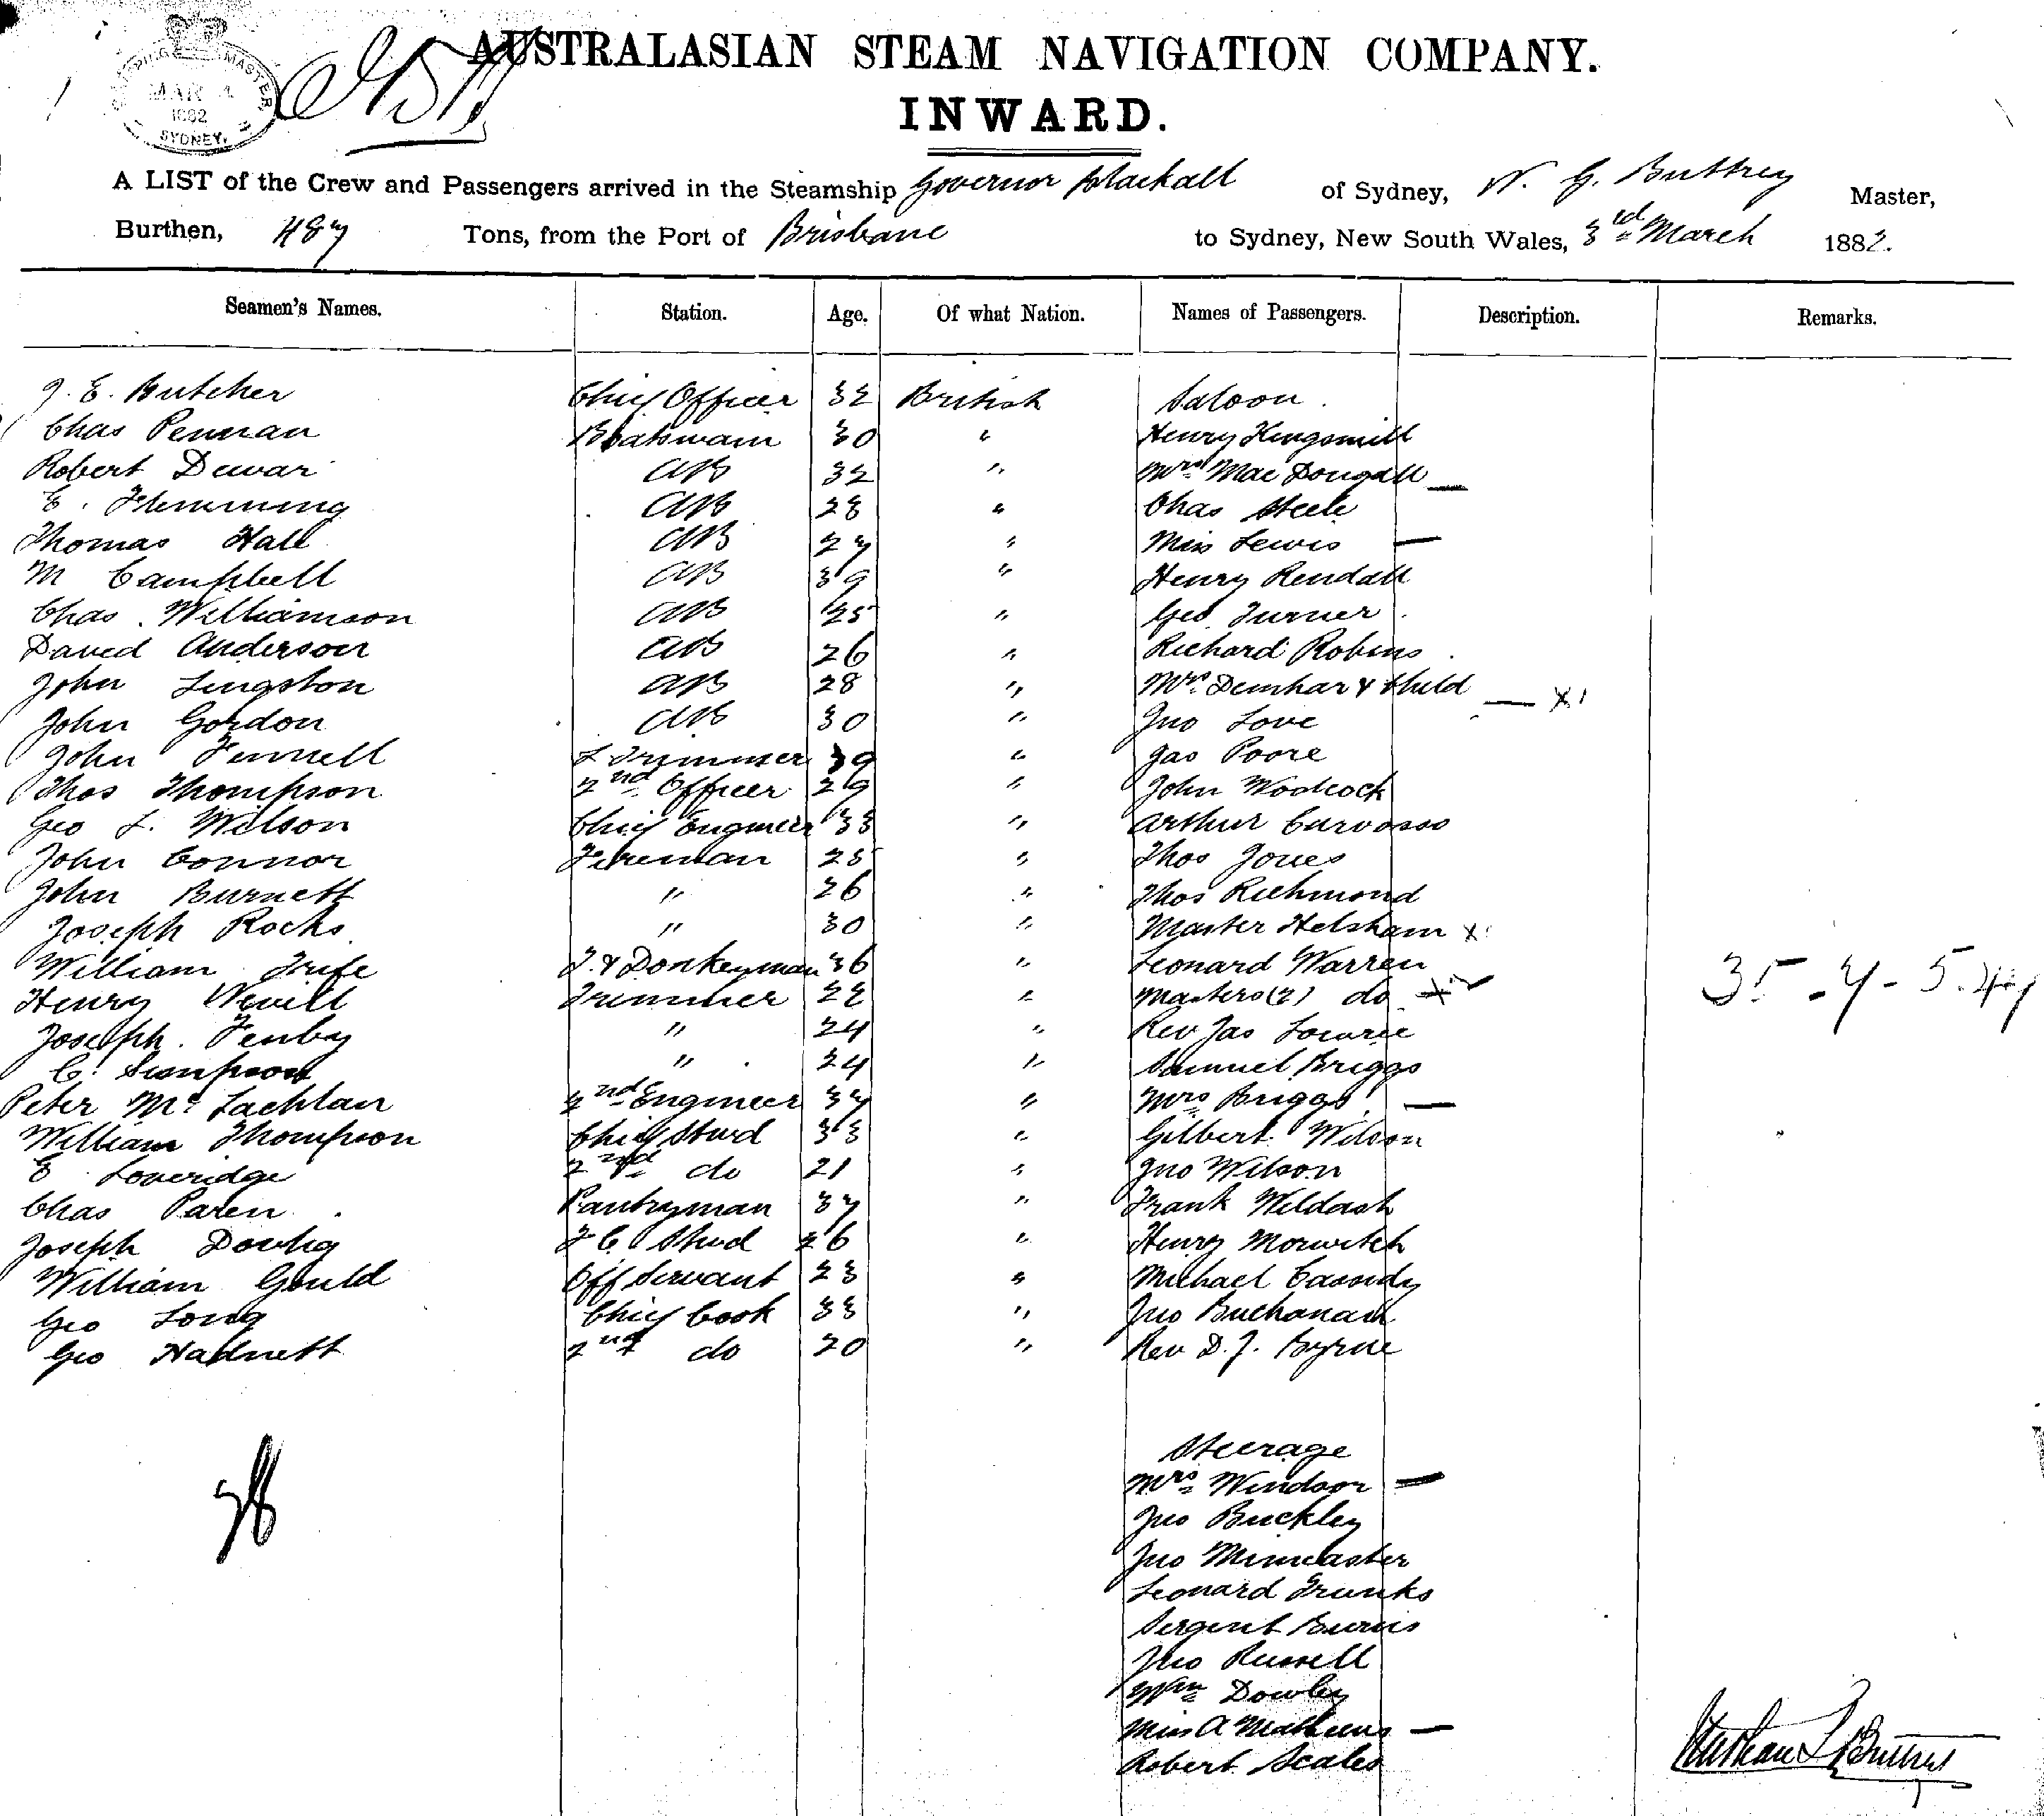 AUSTRALASIAN STEAM NAVIGATION COMPANY.
SHIPPING MASTER
MAR 4
1882
SYDNEY.
INWARD.
A LIST of the Crew and Passengers arrived in the Steamship Governor Blackall of Sydney, W. G. Buttrey Master,
Burthen, 487 Tons, from the Port of Brisbane to Sydney, New South Wales, 3rd March 1882.
Seamen's Names. Station. Age. Of what Nation. Names of Passengers. Description. Remarks.
J. E. Butcher Chief Officer 32 British Saloon
Chas Penman Boatswain 30 " Henry Kingsmill
Robert Dewar AB 32 " Mrs MacDougall —
E. Flemming AB 28 " Chas Steele
Thomas Hall AB 27 " Miss Lewis —
M Campbell AB 39 " Henry Rendall
Chas. Williamson AB 25 " Geo Turner
David Anderson AB 26 " Richard Robins
John Lingston AB 28 " Mrs. Demhar & Child — x1
John Gordon AB 30 " Jno Love
John Fennell L Trimmer 39 " Jas Poore
Thos Thompson 2nd Officer 29 " John Woolcock
Geo L. Wilson Chief Engineer 33 " Arthur Curvosso
John Connor Fireman 25 " Thos Jones
John Burnett " 26 " Thos Richmond
Joseph Rocks " 30 " Master Helsham x
William Trife F. & Donkeyman 36 " Leonard Warren
Henry Nevill Trimmer 22 " Masters (2) do x
Joseph Fenby " 24 " Rev Jas Lowrie
C. Simpson " 24 " Samuel Briggs
Peter Mc Lachlan 2nd Engineer 37 " Mrs Briggs —
William Thompson Chief Stwd 33 " Gilbert Wilson
E Loveridge 2nd do 21 " Jno Wilson
Chas Paren Pantryman 37 " Frank Weldash
Joseph Dowlig F C Stwd 26 " Henry Morwitch
William Gould Off Servant 23 " Michael Cassidy
Geo Long Chief Cook 33 " Jno Buchanan
Geo Hadnett 2nd do 20 " Rev D. J. Byrne
Steerage
Mrs Windsor —
Jno Buckley
Jno Minncaster
Leonard Trunks
Sergent Burns
Jno Russell
Wm Dowley
Miss A Mathews —
Robert Scales